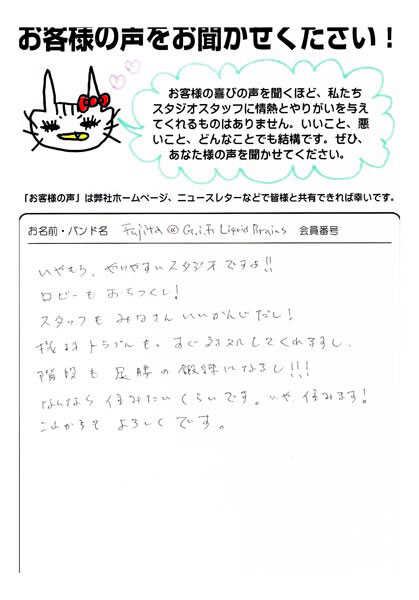 お客様の声をお聞かせください！
お客様の喜びの声を聞くほど、私たち
スタジオスタッフに情熱とやりがいを与え
てくれるものはありません。いいこと、悪
いこと、どんなことでも結構です。ぜひ、
あなた様の声を聞かせてください。
「お客様の声」は弊社ホームページ、ニュースレターなどで皆様と共有できれば幸いです。
お名前・バンド名 Fujita @ G.i.f. Liquid Brains 会員番号
いやもう、やりやすいスタジオですよ!!
ロビーもおちつくし!
スタッフもみなさんいいかんじだし!
機材トラブルも。すぐ対処してくれますし、
階段も足腰の鍛錬になるし!!!
なんなら住みたいくらいです。いや住みます!
これからもよろしくです。